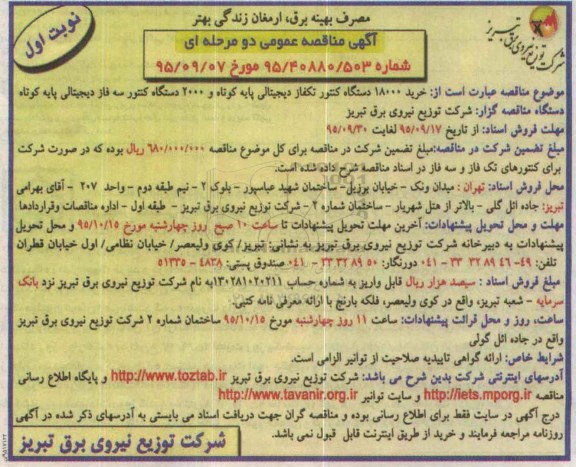 مصرف بهینه برق، ارمغان زندگی بهتر
نوبت اول
آگهی مناقصه عمومی دو مرحله ای
شماره ۹۵/۴۰۸۸۰/۵۰۳ مورخ ۹۵/۰۹/۰۷
شرکت توزیع نیروی برق تبریز
موضوع مناقصه عبارت است از: خرید ۱۸۰۰۰ دستگاه کنتور تکفاز دیجیتالی پایه کوتاه و ۲۰۰۰ دستگاه کنتور سه فاز دیجیتالی پایه کوتاه
دستگاه مناقصه گزار: شرکت توزیع نیروی برق تبریز
مهلت فروش اسناد: از تاریخ ۹۵/۰۹/۱۷ لغایت ۹۵/۰۹/۳۰
مبلغ تضمین شرکت در مناقصه:مبلغ تضمین شرکت در مناقصه برای کل موضوع مناقصه ۶۸۰/۰۰۰/۰۰۰ ریال بوده که در صورت شرکت
برای کنتورهای تک فاز و سه فاز در اسناد مناقصه شرح داده شده است.
محل فروش اسناد: تهران : میدان ونک - خیابان برزیل - ساختمان شهید عباسپور - بلوک ۲ - نیم طبقه دوم - واحد ۲۰۷ - آقای بهرامی
تبریز: جاده ائل گلی - بالاتر از هتل شهریار - ساختمان شماره ۲ - شرکت توزیع نیروی برق تبریز - طبقه اول - اداره مناقصات وقراردادها
مهلت و محل تحویل پیشنهادات: آخرین مهلت تحویل پیشنهادات تا ساعت ۱۰ صبح روز چهارشنبه مورخ ۹۵/۱۰/۱۵ و محل تحویل
پیشنهادات به دبیرخانه شرکت توزیع نیروی برق تبریز به نشانی تبریز/ کوی ولیعصر/ خیابان نظامی/ اول خیابان قطران
تلفن: ۴۹-۴۶ ۸۹ ۳۲ ۳۳ - ۰۴۱ دورنگار: ۵۰ ۸۹ ۳۲ ۳۳ - ۰۴۱ صندوق پستی: ۴۸۳۸ - ۵۱۳۳۵
مبلغ فروش اسناد : سیصد هزار ریال قابل واریز به شماره حساب ۱۳۰۲۸۱۰۲۰۲۱۱به نام شرکت توزیع نیروی برق تبریز نزد بانک
سرمایه - شعبه تبریز، واقع در کوی ولیعصر، فلکه بارنج با ارائه معرفی نامه کتبی
ساعت، روز و محل قرائت پیشنهادات: ساعت ۱۱ روز چهارشنبه مورخ ۹۵/۱۰/۱۵ ساختمان شماره ۲ شرکت توزیع نیروی برق تبریز
واقع در جاده ائل گولی
شرایط خاص: ارائه گواهی تاییدیه صلاحیت از توانیر الزامی است.
آدرسهای اینترنتی شرکت بدین شرح می باشد: شرکت توزیع نیروی برق تبریز http://www.toztab.ir و پایگاه اطلاع رسانی
مناقصه http://iets.mporg.ir و سایت توانیر http://www.tavanir.org.ir
درج آگهی در سایت فقط برای اطلاع رسانی بوده و مناقصه گران جهت دریافت اسناد می بایستی به آدرسهای ذکر شده در آگهی
روزنامه مراجعه فرمایند و خرید از طریق اینترنت قابل قبول نمی باشد.
شرکت توزیع نیروی برق تبریز